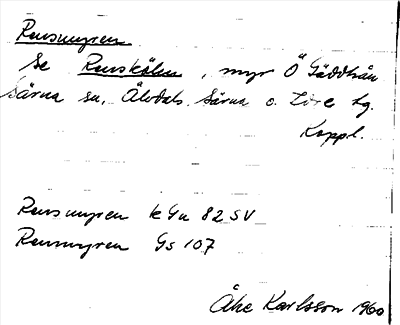 Rensmyren
Se Renskölen, myr Ö Gäddtrån
Särna sn, Älvdals, Särna o. Idre tg.
Koppl.
Rensmyren kGu 82 SV
Rensmyren Gs 107
Åke Karlsson 1960